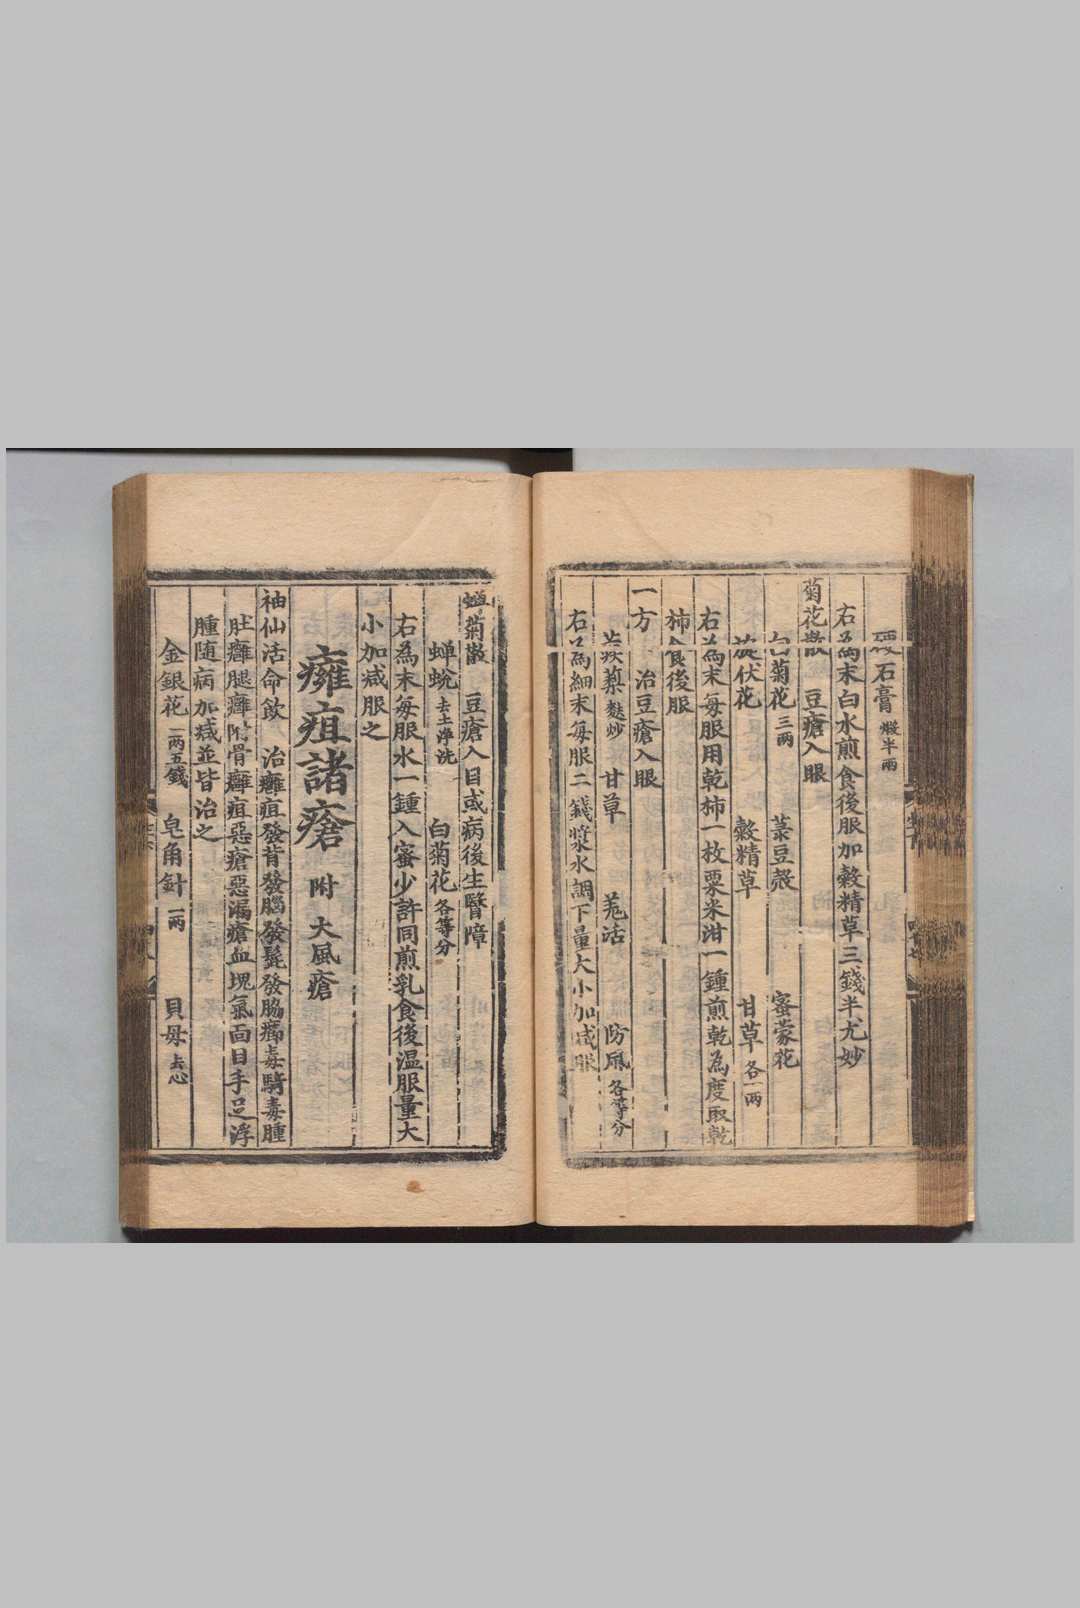 硬石膏煅半兩
右為末白水煎食後服加穀精草三錢半尤妙
菊花散 豆瘡入眼
白菊花三兩 菉豆殼 蜜蒙花
旋伏花 穀精草 甘草各一兩
右為末每服用乾柿一枚粟米泔一鍾煎乾為度取乾
柿食後服
一方 治豆瘡入眼
蒺䔧麩炒 甘草 羌活 防風各等分
右為細末每服二錢漿水調下量大小加减服
蟬菊散 豆瘡入目或病後生瞖障
蟬蛻去土淨洗 白菊花各等分
右為末每服水一鍾入蜜少許同煎乳食後温服量大
小加减服之
癰疽諸瘡 附 大風瘡
神仙活命飲 治癰疽發背發腦發髭發脇癰毒騎毒腫
肚癰腿癰附骨癰疽惡瘡惡漏瘡血塊氣面目手足浮
腫随病加减並皆治之
金銀花一兩五錢 皂角針一兩 貝母去心